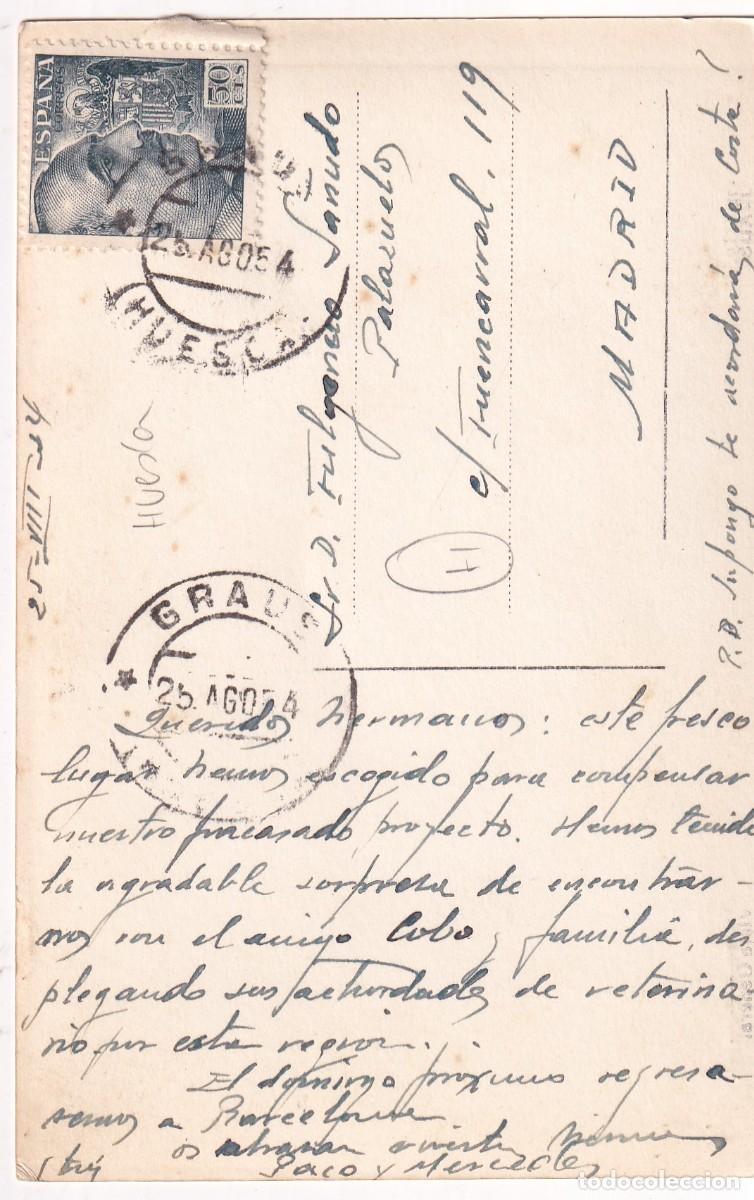 ESPAÑA
CORREOS
50
CTS
GRAUS
25 AGO 54
(HUESCA)
25-VIII-54
Huesca
GRAUS
25 AGO 54
Sr. D. Fulgencio Sañudo
Palazuelos
c/ Fuencarral, 119
MADRID
H
P.D. Supongo te acordarás de Costa!
Queridos hermanos: este fresco
lugar hemos escogido para compensar
nuestro fracasado proyecto. Hemos tenido
la agradable sorpresa de encontrar-
nos con el amigo Cobo y familia, des
plegando sus actividades de veterina
rio por esta región.
El domingo próximo regresa-
remos a Barcelona
os abrazan vuestros
Paco y Mercedes
todocoleccion